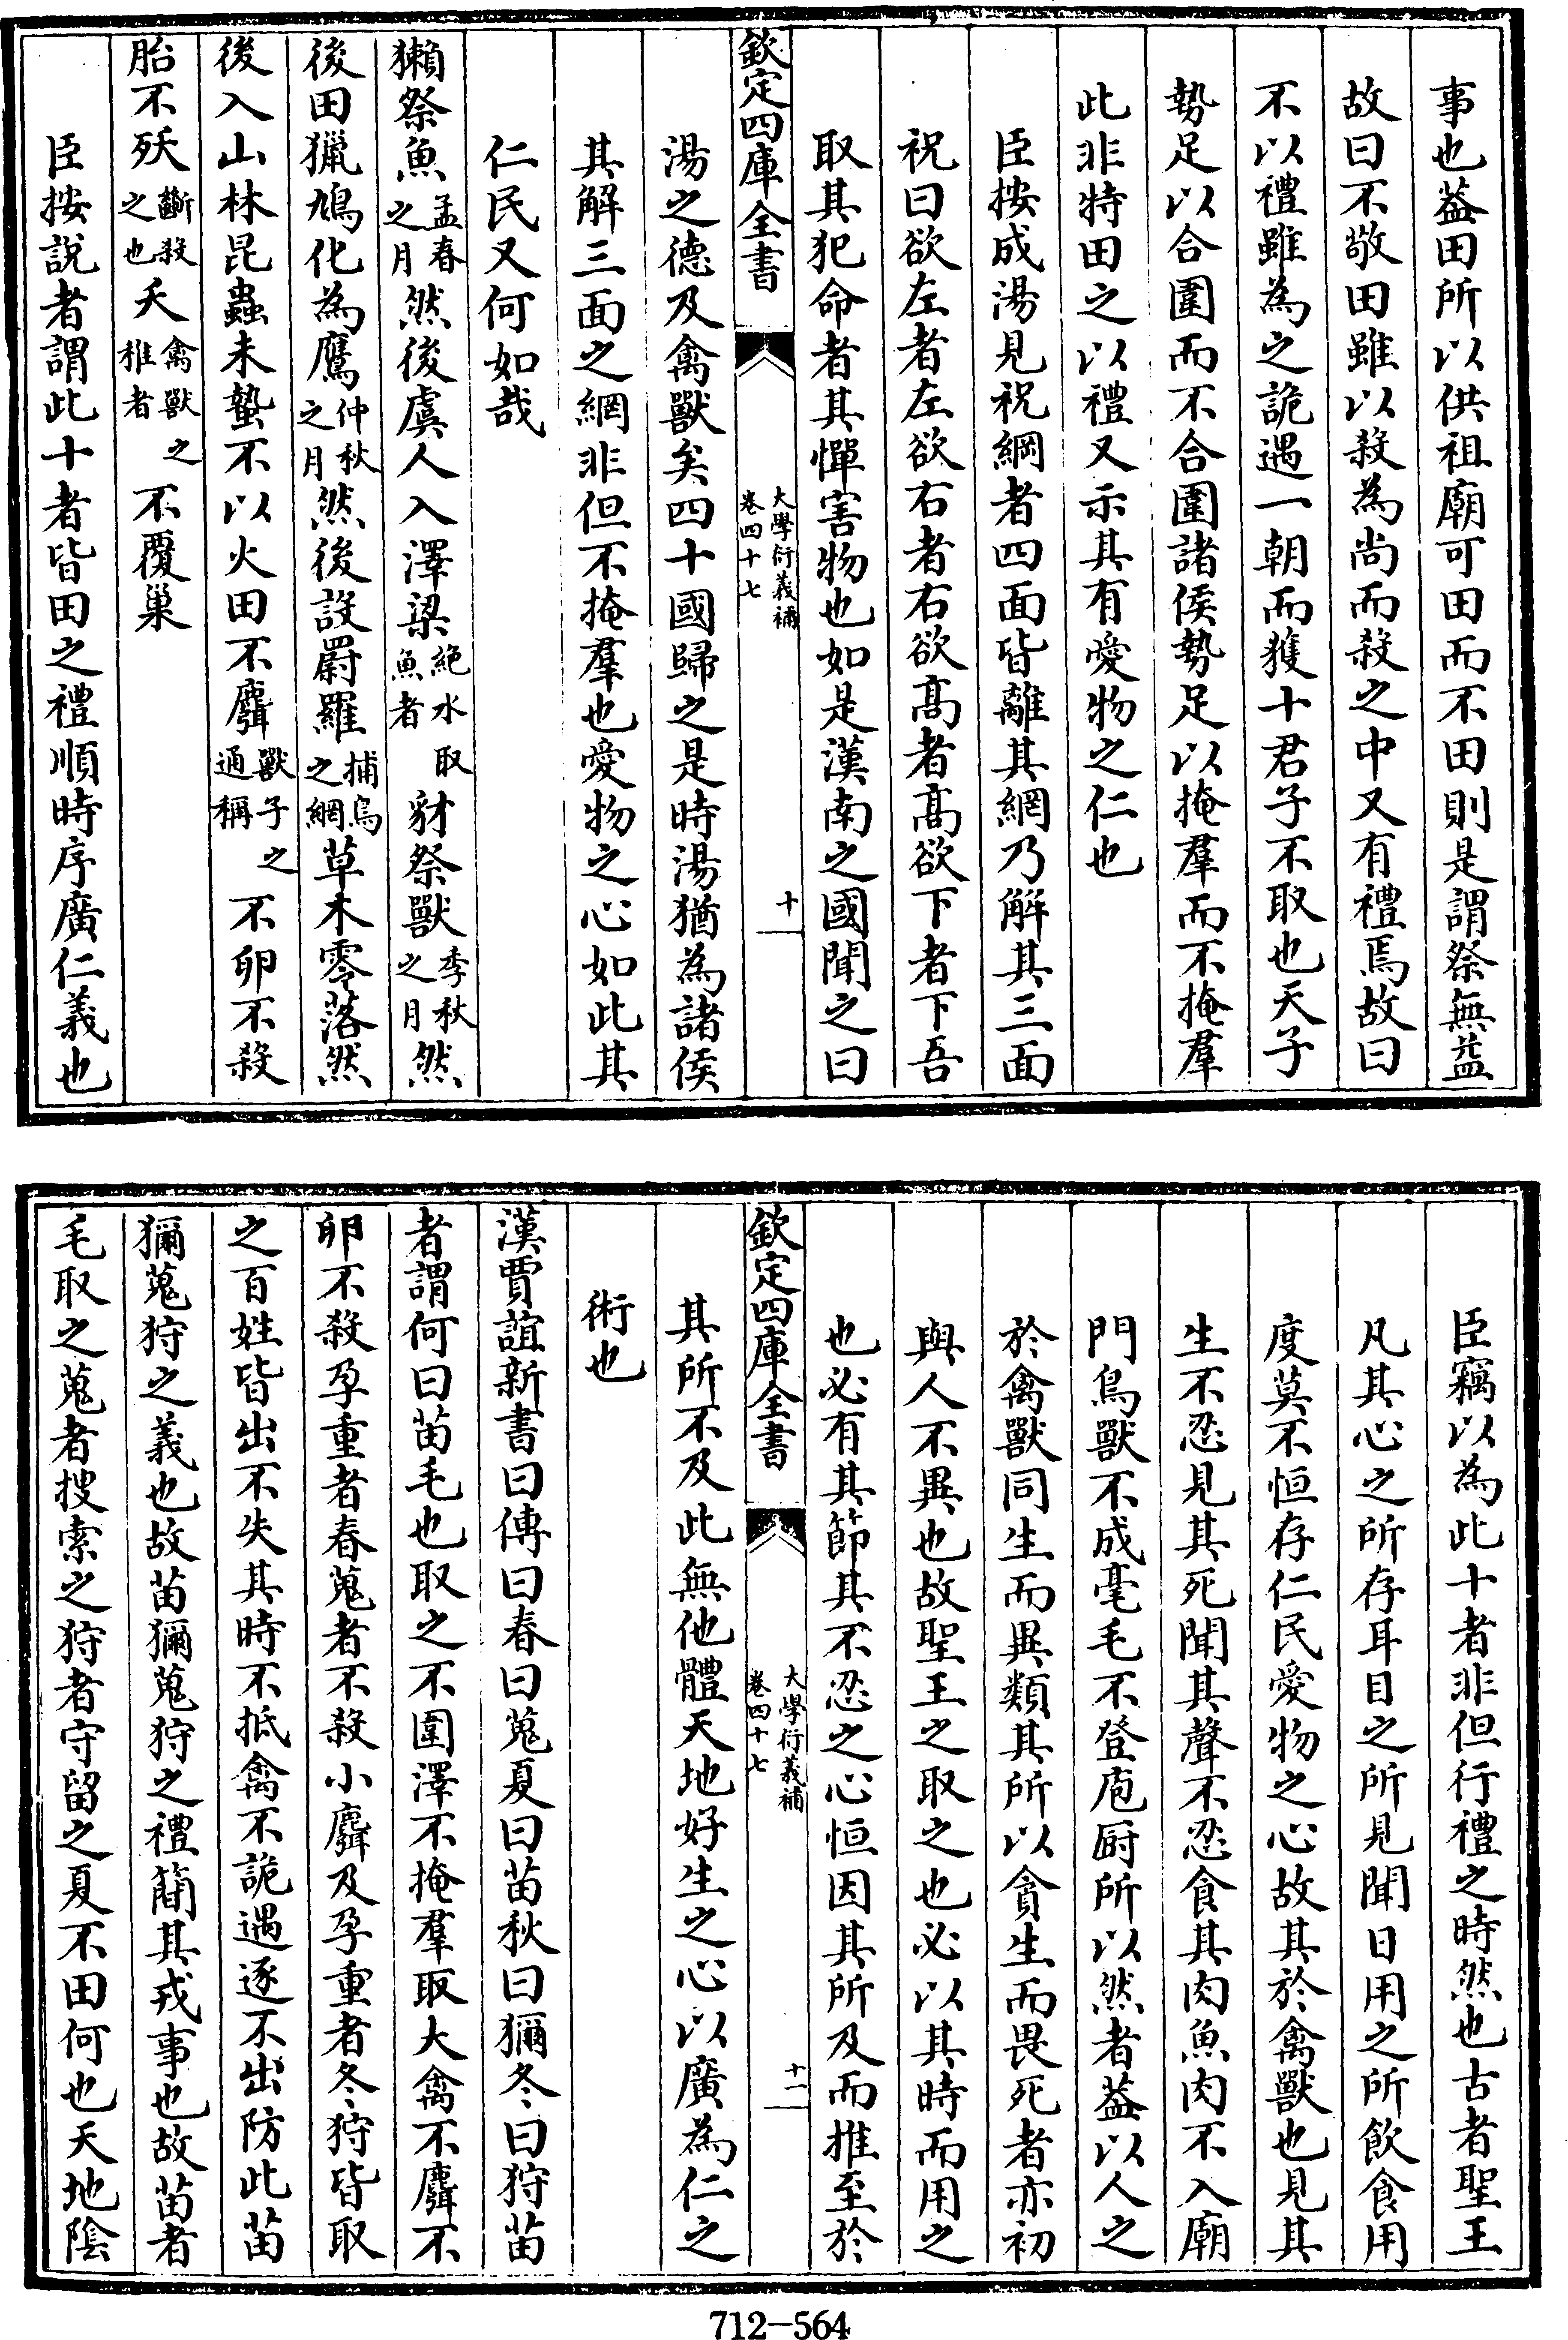 事也葢田所以供祖廟可田而不田則是謂祭無益
故曰不敬田雖以殺為尚而殺之中又有禮焉故曰
不以禮雖為之詭遇一朝而獲十君子不取也天子
勢足以合圍而不合圍諸侯勢足以掩羣而不掩羣
此非特田之以禮又示其有愛物之仁也
臣按成湯見祝網者四面皆離其網乃解其三面
祝曰欲左者左欲右者右欲髙者髙欲下者下吾
取其犯命者其憚害物也如是漢南之國聞之曰
欽定四庫全書
大學衍義補
卷四十七
十
湯之德及禽獸矣四十國歸之是時湯猶為諸侯
其解三面之網非但不掩羣也愛物之心如此其
仁民又何如哉
獺祭魚孟春之月然後虞人入澤梁絶水取魚者豺祭獸季秋之月然
後田獵鳩化為鷹仲秋之月然後設罻羅捕鳥之網草木零落然
後入山林昆蟲未蟄不以火田不麛獸子之通稱不卵不殺
胎不殀斷殺之也夭禽獸之稚者不覆巢
臣按說者謂此十者皆田之禮順時序廣仁義也
臣竊以為此十者非但行禮之時然也古者聖王
凡其心之所存耳目之所見聞日用之所飲食用
度莫不恒存仁民愛物之心故其於禽獸也見其
生不忍見其死聞其聲不忍食其肉魚肉不入廟
門鳥獸不成毫毛不登庖厨所以然者葢以人之
於禽獸同生而異類其所以貪生而畏死者亦初
與人不異也故聖王之取之也必以其時而用之
也必有其節其不忍之心恒因其所及而推至於
欽定四庫全書
大學衍義補
卷四十七
十一
其所不及此無他體天地好生之心以廣為仁之
術也
漢賈誼新書曰傳曰春曰蒐夏曰苗秋曰獮冬曰狩苗
者謂何曰苗毛也取之不圍澤不掩羣取大禽不麛不
卵不殺孕重者春蒐者不殺小麛及孕重者冬狩皆取
之百姓皆出不失其時不抵禽不詭遇逐不出防此苗
獮蒐狩之義也故苗獮蒐狩之禮簡其戎事也故苗者
毛取之蒐者搜索之狩者守留之夏不田何也天地陰
712-564